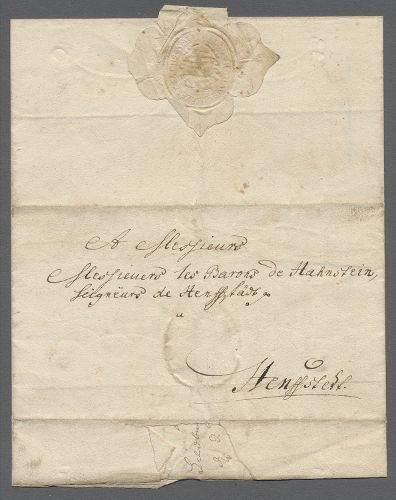 A Messieurs
Messieuers les Barons de Hahnstein,
Seigneurs de Henffstädt
Henffstedt.